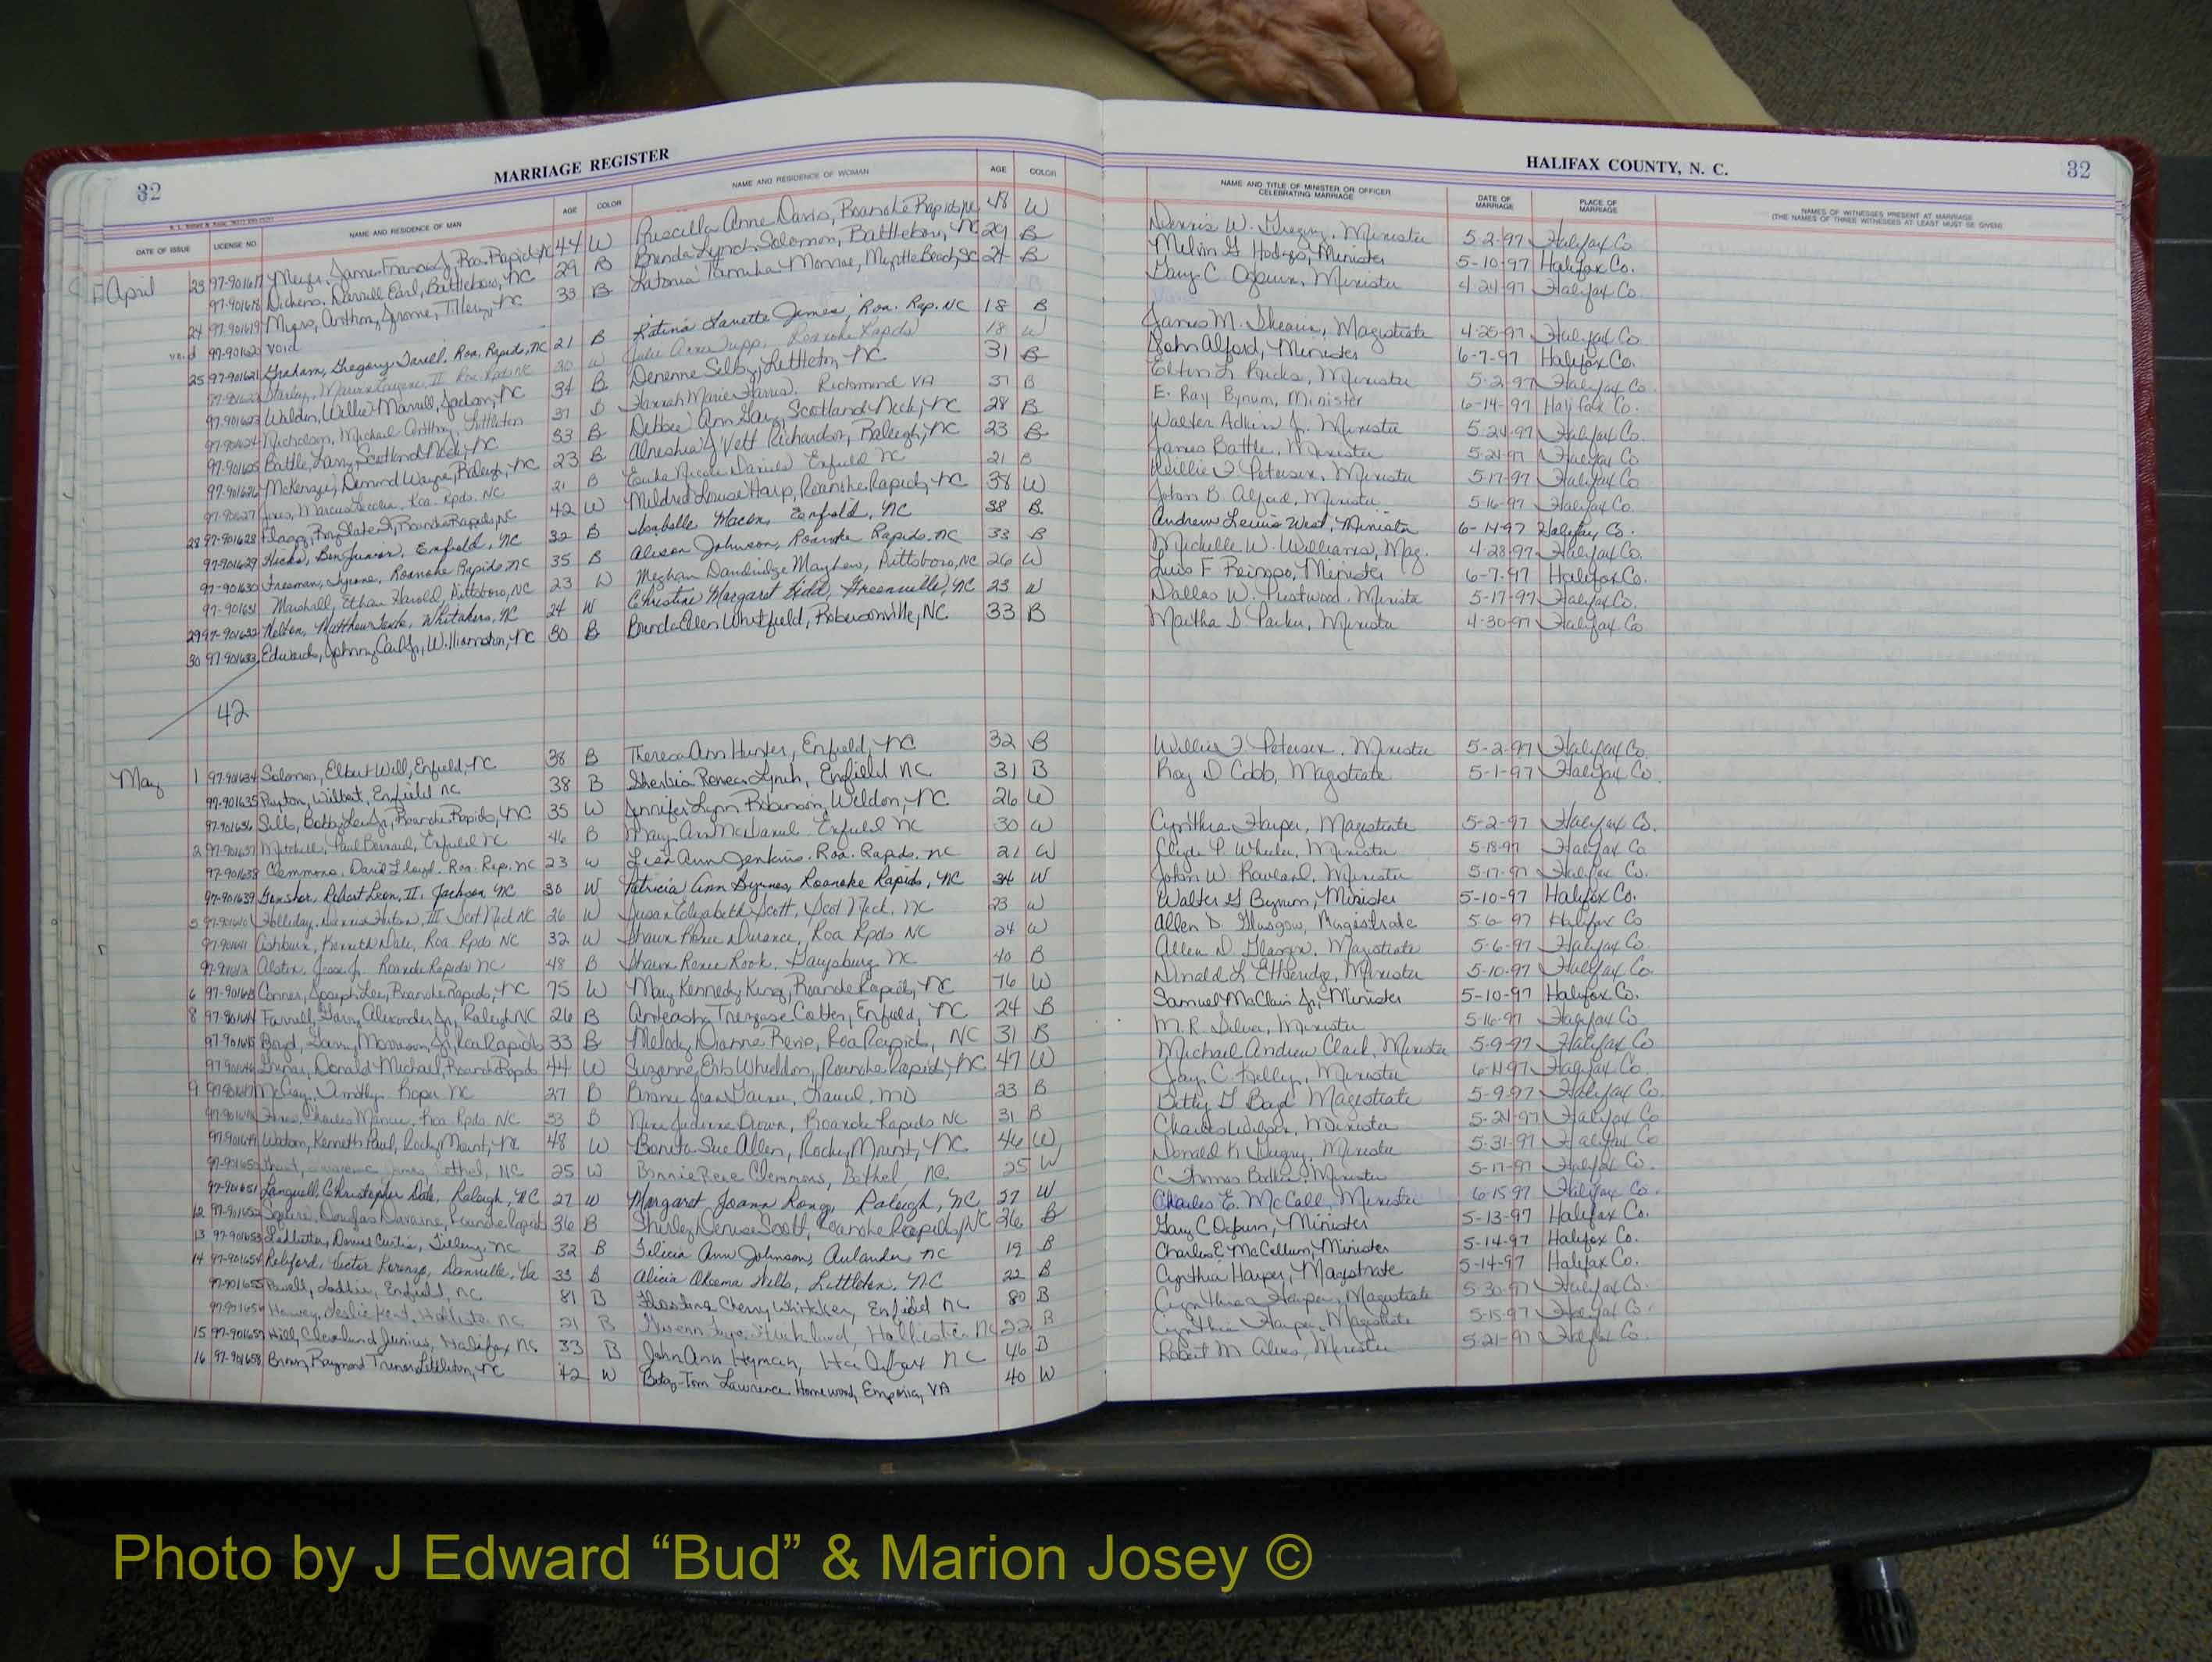 32 MARRIAGE REGISTER
HALIFAX COUNTY, N. C. 32
DATE OF ISSUE LICENSE NO. NAME AND RESIDENCE OF MAN AGE COLOR NAME AND RESIDENCE OF WOMAN AGE COLOR NAME AND TITLE OF MINISTER OR OFFICER CELEBRATING MARRIAGE DATE OF MARRIAGE PLACE OF MARRIAGE NAMES OF WITNESSES PRESENT AT MARRIAGE (THE NAMES OF THREE WITNESSES AT LEAST MUST BE GIVEN)
April 23 97-901617 James Francis Roa. Rapids NC 44 W Priscilla Anne Davis, Roanoke Rapids NC 48 W Dennis W. Gregory, Minister 5-2-97 Halifax Co
97-901618 Dickens, Darrell Earl, Battleboro, NC 29 B Brenda Lynch Solomon, Battleboro, NC 29 B Melvin G Hodges, Minister 5-10-97 Halifax Co.
24 97-901619 Myers, Anthony Jerome, Tillery, NC 33 B Latonia Tamika Monroe, Myrtle Beach, SC 24 B Gary C. Ogburn, Minister 4-24-97 Halifax Co.
void 97-901620 Void
25 97-901621 Graham, Gregory Roa. Rapids, NC 21 B Katina Lanette James, Roa. Rap. NC 18 B James M. Shearin, Magistrate 4-25-97 Halifax Co.
97-901622 30 W Julie Anne Tripp, Roanoke Rapids 18 W John Alford, Minister 6-7-97 Halifax Co.
97-901623 Walden, Willie Jackson, NC 34 B Denenne Selby, Littleton, NC 31 B Elton L Ricks, Minister 5-2-97 Halifax Co.
97-901624 Nicholson, Michael Anthony, Littleton 37 B Hannah Marie Harris, Richmond VA 37 B E. Ray Bynum, Minister 6-14-97 Halifax Co.
97-901625 Battle, Larry, Scotland Neck, NC 33 B Debbie Ann Gary, Scotland Neck, NC 28 B Walter Adkins Jr. Minister 5-24-97 Halifax Co.
97-901626 McKenzie, Demond Wayne, Raleigh, NC 23 B Richardson, Raleigh, NC 23 B James Battle, Minister 5-24-97 Halifax Co
97-901627 Jones, Marcus Roa. Rpds. NC 21 B Nicole Daniels Enfield NC 21 B Willie F Petersen, Minister 5-17-97 Halifax Co
28 97-901628 Flagg, Roy Slater Roanoke Rapids, NC 42 W Mildred Louise Harp, Roanoke Rapids, NC 38 W John B. Alford, Minister 5-16-97 Halifax Co.
97-901629 Hicks, Ben Junior, Enfield, NC 32 B Isabelle Macon, Enfield, NC 38 B Andrew Lewis West, Minister 6-14-97 Halifax Co.
97-901630 Freeman, Tyrone, Roanoke Rapids NC 35 B Alison Johnson, Roanoke Rapids, NC 33 B Michelle W. Williams, Mag. 4-28-97 Halifax Co.
97-901631 Marshall, Ethan Harold, Pittsboro, NC 23 W Meghan Dandridge Mayhew, Pittsboro, NC 26 W Luis F Minister 6-7-97 Halifax Co.
29 97-901632 Melton, Matthew Whitakers, NC 24 W Christine Margaret Kidd, Greenville, NC 23 W Dallas W. Prestwood, Minister 5-17-97 Halifax Co.
30 97-901633 Edwards, Johnny Carl Jr., Williamston, NC 30 B Brenda Ellen Whitfield, Robersonville, NC 33 B Martha D Parker, Minister 4-30-97 Halifax Co
42
May 1 97-901634 Solomon, Elbert Will, Enfield, NC 38 B Theresa Ann Hunter, Enfield, NC 32 B Willie F Petersen, Minister 5-2-97 Halifax Co.
97-901635 Wilbert, Enfield NC 38 B Renea Lynch, Enfield NC 31 B Ray D Cobb, Magistrate 5-1-97 Halifax Co.
97-901636 Sills, Bobby Lee Jr, Roanoke Rapids, NC 35 W Jennifer Lynn Robinson, Weldon, NC 26 W
2 97-901637 Mitchell, Paul Bernard, Enfield NC 46 B Mary Ann McDaniel Enfield NC 30 W Cynthia Harper, Magistrate 5-2-97 Halifax Co.
97-901638 Clemmons, David Lloyd, Roa. Rap. NC 23 W Lisa Ann Jenkins, Roa. Rapids, NC 21 W Clyde P. Wheeler, Minister 5-18-97 Halifax Co
97-901639 Robert Leon, II, Jackson, NC 30 W Patricia Ann Byrnes, Roanoke Rapids, NC 34 W John W. Minister 5-17-97 Halifax Co.
5 97-901640 Holliday, III Scot Neck NC 26 W Susan Elizabeth Scott, Scot Neck, NC 23 W Walter G Bynum, Minister 5-10-97 Halifax Co.
97-901641 Ashburn, Kenneth Dale, Roa Rpds NC 32 W Shawn Renee Durance, Roa Rpds NC 24 W Allen D. Glasgow, Magistrate 5-6-97 Halifax Co
97-901642 Alston, Jesse Jr. Roanoke Rapids NC 48 B Shawn Renee Rook, Gaysburg NC 40 B Allen D. Glasgow, Magistrate 5-6-97 Halifax Co.
6 97-901643 Conner, Joseph Lee, Roanoke Rapids, NC 75 W Mary Kennedy King, Roanoke Rapids, NC 76 W Donald L Etheridge, Minister 5-10-97 Halifax Co.
8 97-901644 Farrell, Harry Alexander Jr., Raleigh NC 26 B Cotten, Enfield, NC 24 B Samuel McClain Jr., Minister 5-10-97 Halifax Co.
97-901645 Boyd, Morrison, Jr, Roa Rapids 33 B Melody Dianne Revis, Roa Rapids, NC 31 B M. R. Silver, Minister 5-16-97 Halifax Co
97-901646 Donald Michael, Roanoke Rapids 44 W Suzanne Erb Whieldon, Roanoke Rapids, NC 47 W Michael Andrew Clark, Minister 5-9-97 Halifax Co
9 97-901647 McCray, Timothy, Roper NC 27 B Laurel, MD 23 B Jay C. Kelly, Minister Halifax Co.
97-901648 Charles Roa Rpds. NC 33 B Brown, Roanoke Rapids NC 31 B Betty G Magistrate 5-9-97 Halifax Co.
97-901649 Watson, Kenneth Paul, Rocky Mount, NC 48 W Bonita Sue Allen, Rocky Mount, NC 46 W Charles Wilson, Minister 5-24-97 Halifax Co
97-901650 Bethel, NC 25 W Bonnie Rene Clemmons, Bethel, NC 25 W Donald K. Minister 5-31-97 Halifax Co
97-901651 Christopher Dale, Raleigh, NC 27 W Margaret Joann Kong, Raleigh, NC 27 W C Thomas Minister 5-17-97 Halifax Co.
12 97-901652 Squire, Douglas Roanoke Rapids 36 B Shirley Denise Scott, Roanoke Rapids, NC 26 B Charles E. McCall, Minister 6-15-97 Halifax Co.
13 97-901653 Ledbetter, Daniel Curtis, Tillery, NC 32 B Felicia Ann Johnson, Aulander NC 19 B Gary C Ogburn, Minister 5-13-97 Halifax Co.
14 97-901654 Reliford, Victor Lorenzo, Danville, Va 33 B Alicia Wills, Littleton, NC 22 B Charles E McCollum, Minister 5-14-97 Halifax Co.
97-901655 Powell, Enfield, NC 81 B Cherry Whitaker, Enfield NC 80 B Cynthia Harper, Magistrate 5-14-97 Halifax Co.
97-901656 Harvey, Leslie Kent, Hollister NC 21 B Gwenn Faye Hollister NC 22 B Cynthia Harper, Magistrate 5-30-97 Halifax Co.
15 97-901657 Hill, Cleveland Junius, Halifax NC 33 B John Ann Hyman, Halifax NC 46 B Cynthia Harper, Magistrate 5-15-97 Halifax Co.
16 97-901658 Brown, Raymond Littleton, NC 42 W Betsy-Tom Lawrence Homewood, Emporia, VA 40 W Robert M. Minister 5-21-97 Halifax Co
Photo by J Edward “Bud” & Marion Josey ©